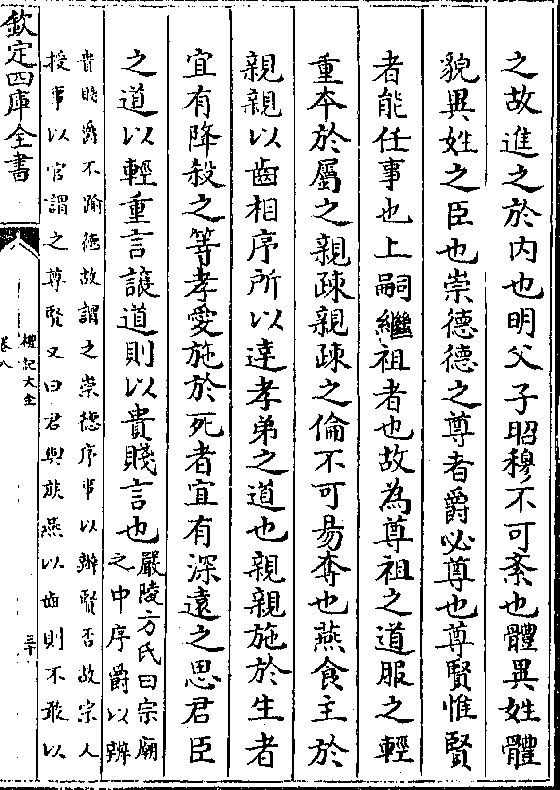 之故進之於内也明父子昭穆不可紊也體異姓體
貌異姓之臣也崇德德之尊者爵必尊也尊賢惟賢
者能任事也上嗣繼祖者也故為尊祖之道服之輕
重本於屬之親疎親疎之倫不可易奪也燕食主於
親親以齒相序所以逹孝弟之道也親親施於生者
宜有降殺之等孝愛施於死者宜有深遠之思君臣
之道以輕重言譲道則以貴賤言也
嚴陵方氏曰宗廟
之中序爵以辨
貴賤爵不踰德故謂之崇德序事以辦賢否故宗人
授事以官謂之尊賢又曰君與族燕以齒則不敢以
欽定四庫全書
禮記大全
卷八
三十